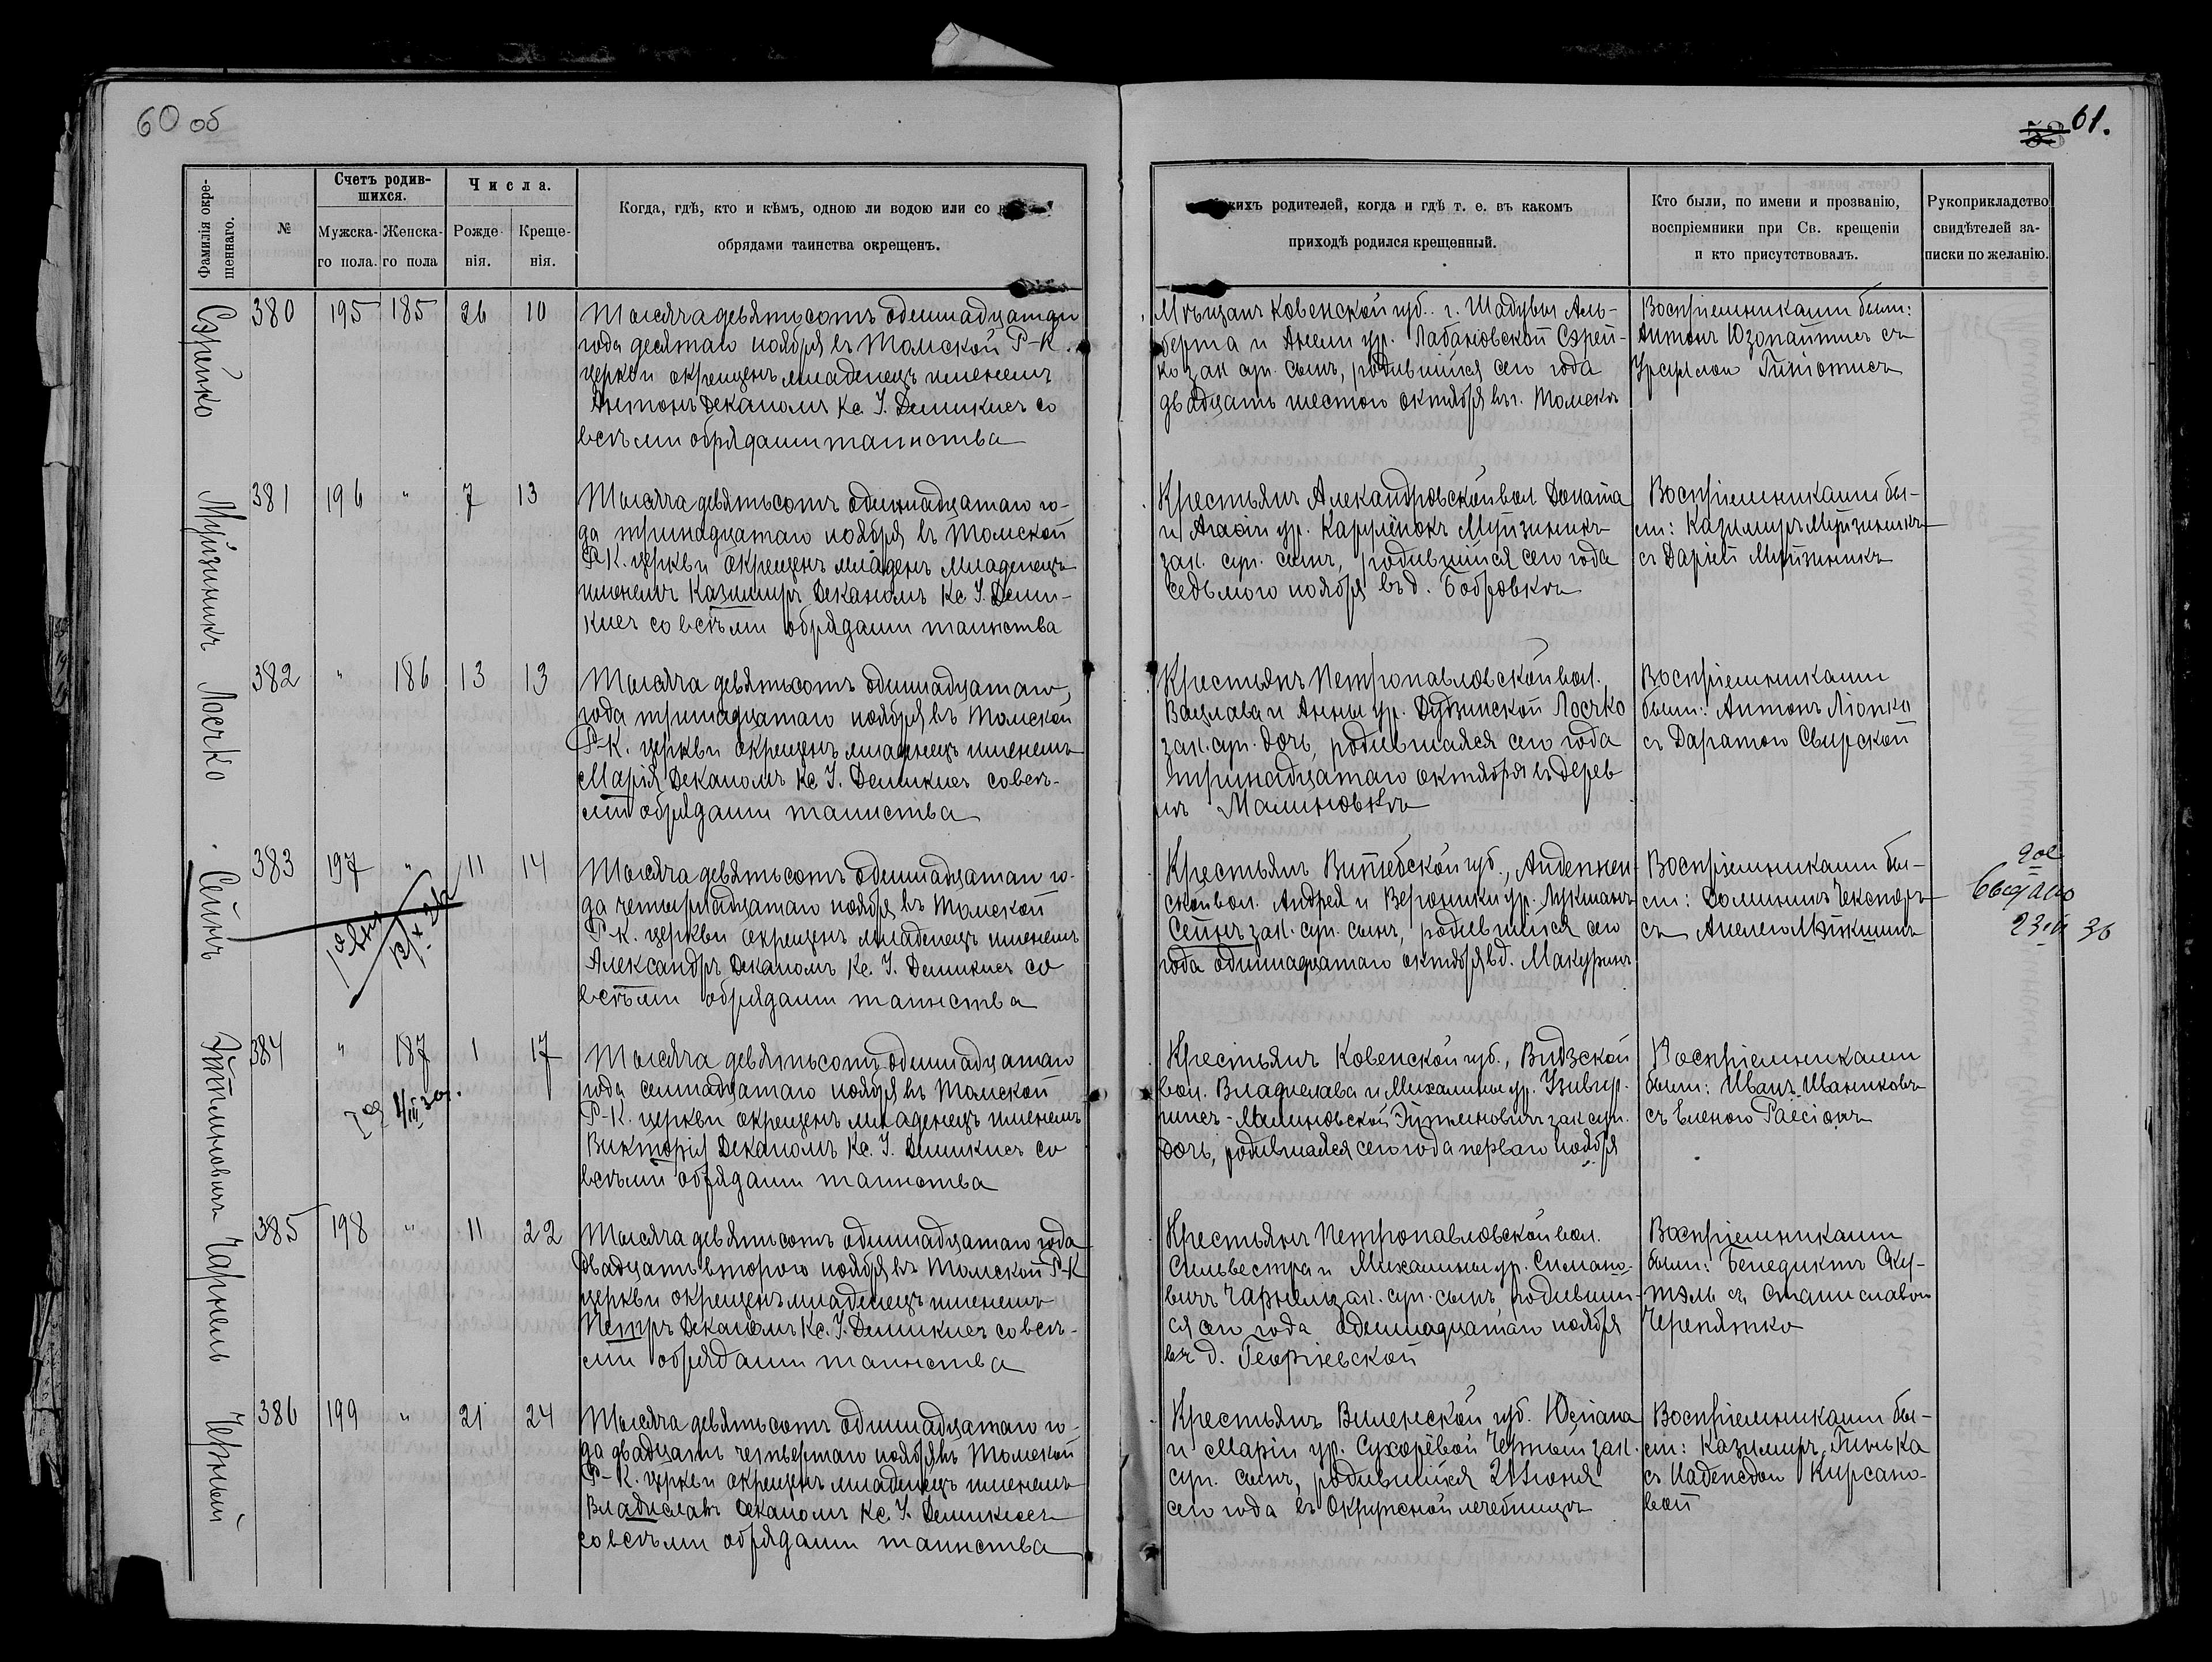 60 об
Фамилія окре-
щеннаго.
№
Счетъ родив-
шихся.
Мужска-
го пола.
Женска-
го пола
Числа.
Рожде-
нія.
Креще-
нія.
Когда, гдѣ, кто и кѣмъ, одною ли водою или со
обрядами таинства окрещенъ.
Сэрейко
380 195 185 26 10
Тысяча девятьсотъ одиннадцатаго
года десятаго ноября въ Томской Р-К.
церкви окрещенъ младенецъ именемъ
Антонъ Деканомъ Кс. І. Демикисъ со
всѣми обрядами таинства
Муйзникъ
381 196 " 7 13
Тысяча девятьсотъ одиннадцатаго го-
да тринадцатаго ноября въ Томской
Р-К. церкви окрещенъ младенъ младенецъ
именемъ Казимиръ Деканомъ Кс І. Деми-
кисъ со всѣми обрядами таинства
Лосчко
382 " 186 13 13
Тысяча девятьсотъ одиннадцатаго
года тринадцатаго ноября въ Томской
Р-К. церкви окрещенъ младенецъ именемъ
Марія Деканомъ Кс І. Демикисъ со всѣ-
ми обрядами таинства
Сейнъ
383 197 " 11 14
Тысяча девятьсотъ одиннадцатаго го-
да четырнадцатаго ноября въ Томской
Р-К. церкви окрещенъ младенецъ именемъ
Александръ Деканомъ Кс. І. Демикисъ со
всѣми обрядами таинства
384 " 187 1 17
Тысяча девятьсотъ одиннадцатаго
года семнадцатаго ноября въ Томской
Р-К. церкви окрещенъ младенецъ именемъ
Викторія Деканомъ Кс. І. Демикисъ со
всѣми обрядами таинства
Чарнель
385 198 " 11 22
Тысяча девятьсотъ одиннадцатаго года
двадцать второго ноября въ Томской Р-К
церкви окрещенъ младенецъ именемъ
Петръ Деканомъ Кс. І. Демикисъ со всѣ-
ми обрядами таинства
Черный
386 199 " 21 24
Тысяча девятьсотъ одиннадцатаго го-
да двадцать четвертаго ноября въ Томской
Р-К. церкви окрещенъ младенецъ именемъ
Владиславъ Деканомъ Кс. І. Демикисъ
со всѣми обрядами таинства
61.
кихъ родителей, когда и гдѣ т. е. въ какомъ
приходѣ родился крещенный.
Кто были, по имени и прозванію,
воспріемники при Св. крещеніи
и кто присутствовалъ.
Рукоприкладство
свидѣтелей за-
писки по желанію.
Мѣщанъ Ковенской губ. г. Шадувы Аль-
берта и Анели ур. Лабановской Сэрей-
ко зак. суп. сынъ, родившійся сего года
двадцать шестого октября въ г. Томскѣ
Воспріемниками были:
Антонъ Юзопайтисъ съ
Крестьянъ Александровской вол. Доната
и Агаѳіи ур. Карулёнокъ Муйзникъ
зак. суп. сынъ, родившійся сего года
седьмого ноября въ д. Бобровкѣ
Воспріемниками бы-
ли: Казимиръ Муйзникъ
съ Дарьей Муйзникъ
Крестьянъ Петропавловской вол.
Вацлава и Анны ур. Дудзинской Лосчко
зак. суп. дочь, родившаяся сего года
тринадцатаго октября въ дерев
нѣ Малиновкѣ
Воспріемниками
были: Антонъ Ліопко
съ Даратою Свирской
Крестьянъ Витебской губ., Анденен-
ской вол. Андрея и Вероники ур. Лукшанъ
Сейнъ зак. суп. сынъ, родившійся сего
года одиннадцатаго октября въ д. Макурина
Воспріемниками бы-
ли: Доминикъ Чекстеръ
съ Анелею
выдано
Крестьянъ Ковенской губ., Видзской
вол. Владислава и Михалины ур.
Малиновской зак. суп.
дочь, родившаяся сего года перваго ноября
Воспріемниками
были: Иванъ Иванковъ
съ Еленою
Крестьянъ Петропавловской вол.
Сильвестра и Михалины ур. Симано-
вичъ Чарнель зак. суп. сынъ, родивший-
ся сего года одиннадцатаго ноября
въ д. Георгіевской
Воспріемниками
были: Бенедиктъ Яку-
тэль съ Станиславою
Черепятко
Крестьянъ Виленской губ. Юліана
и Маріи ур. Сухорёвой Черный зак.
суп. сынъ, родившійся 21 Іюня
сего года въ Окружной лечебницѣ
Воспріемниками бы-
ли: Казимиръ Гинька
съ Надеждою Кирсано-
вой